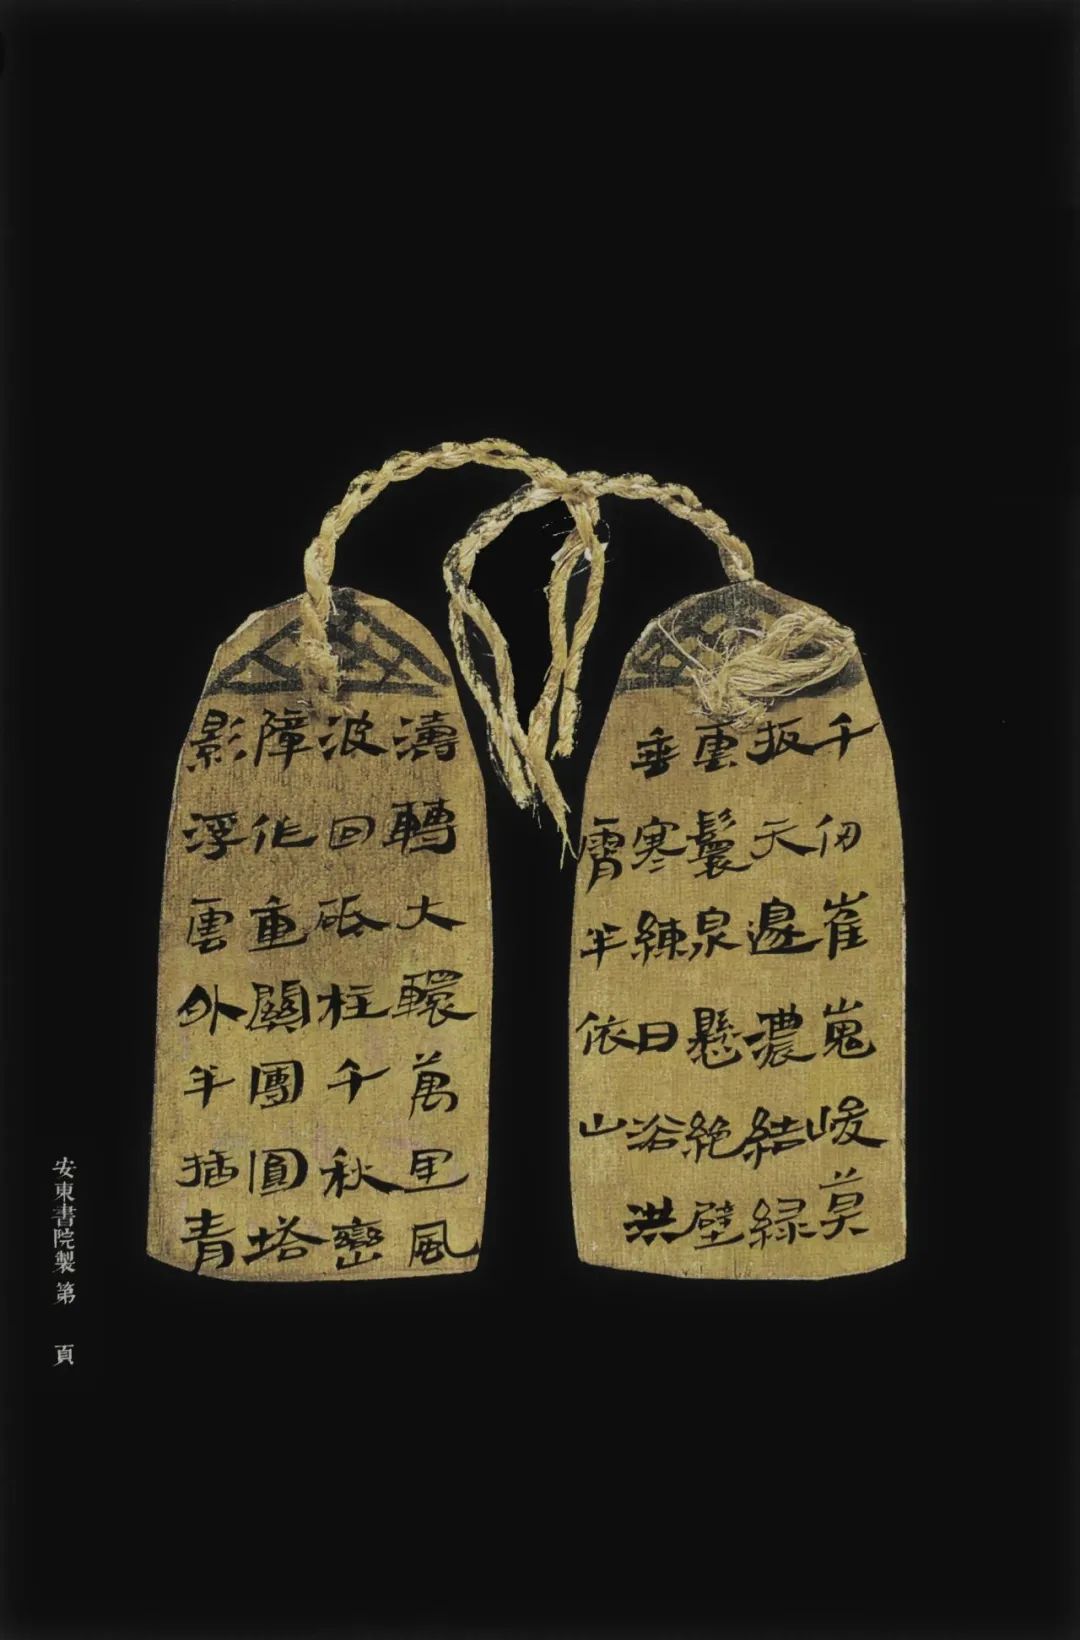 千仞崔嵬峻莫
扳天邊濃結緑
重鬟泉懸絶壁
垂寒練日浴洪
濤轉大轘萬里風
波回砥柱千秋巒
障作重關團圓塔
影浮雲外半插青
霄半依山
安東書院製第 頁